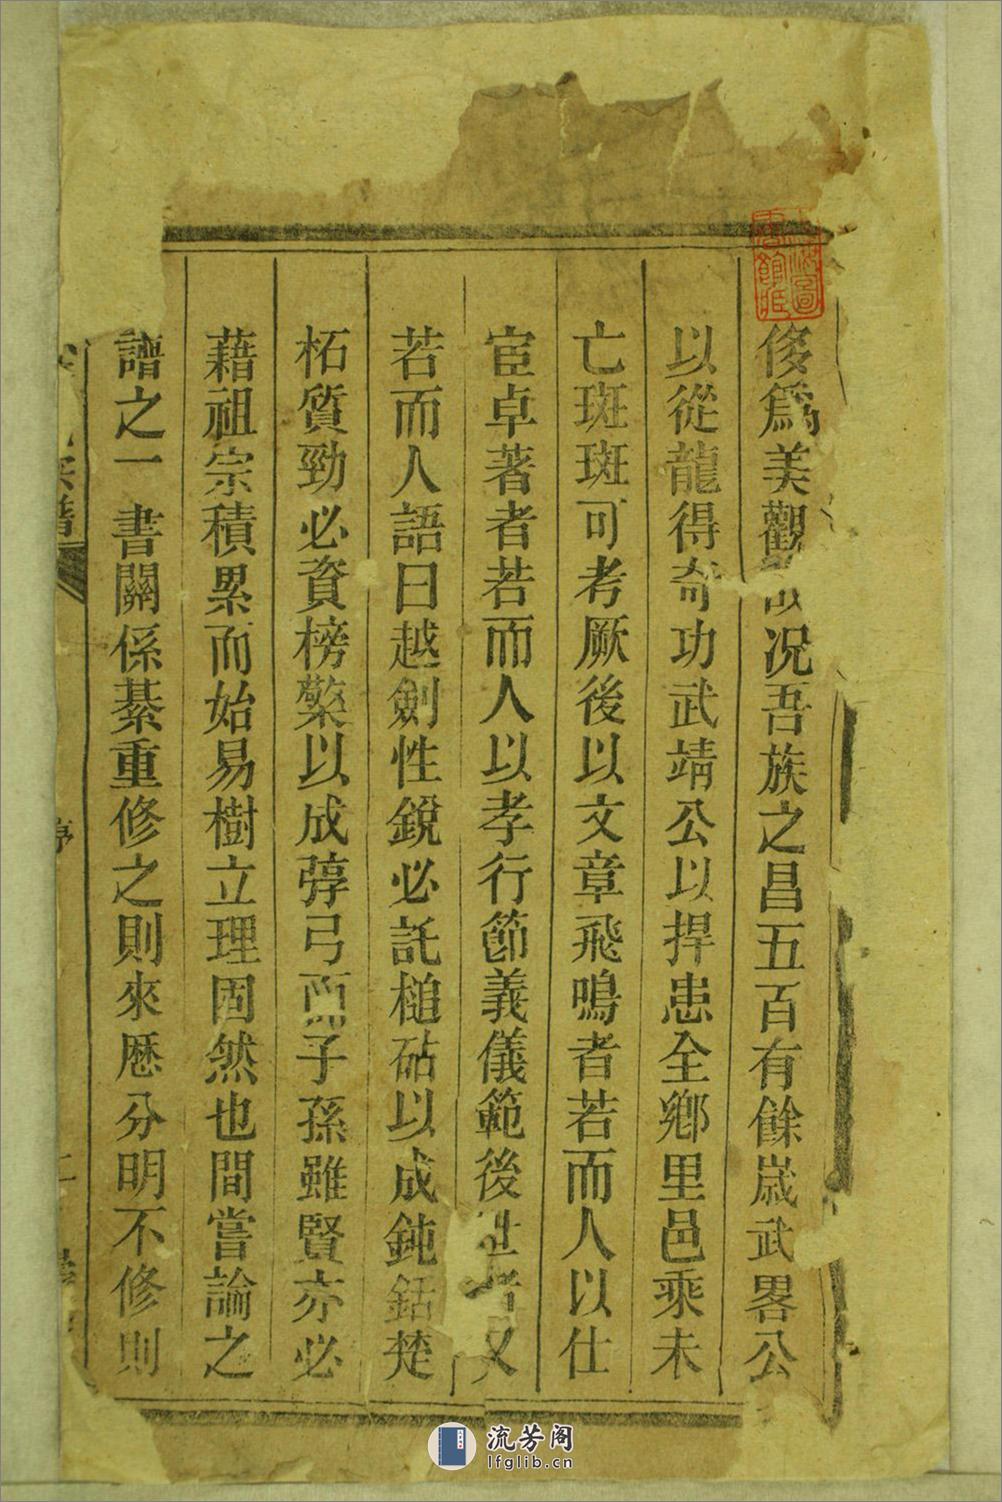 侈爲美觀哉况吾族之昌五百有餘嵗武畧公
以從龍得奇功武靖公以捍患全鄉里邑乘未
亡斑斑可考厥後以文章飛鳴者若而人以仕
宦卓著者若而人以孝行節義儀範後世者又
若而人語曰越劍性銳必託槌砧以成鈍銛楚
柘質勁必資榜檠以成弴弓而子孫雖賢亦必
藉祖宗積累而始易樹立理固然也間嘗論之
譜之一書關係綦重修之則來歷分明不修則
宗譜
序
二
上海圖書館藏
流芳阁
lfglib.cn